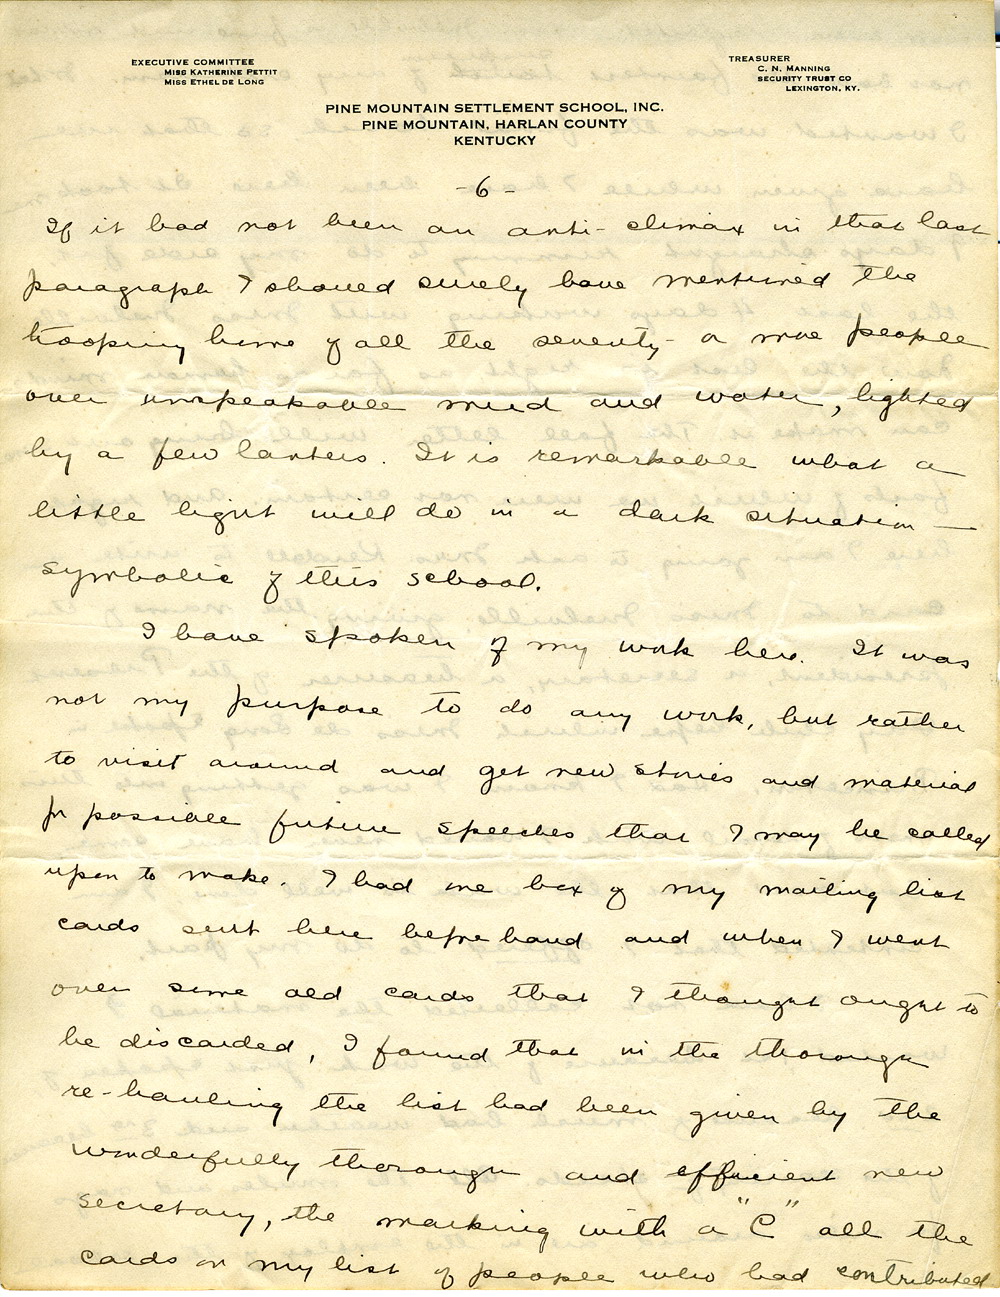 EXECUTIVE COMMITTEE
MISS KATHERINE PETTIT
MISS ETHEL DE LONG
TREASURER
C. N. MANNING
SECURITY TRUST CO
LEXINGTON, KY.
PINE MOUNTAIN SETTLEMENT SCHOOL, INC.
PINE MOUNTAIN, HARLAN COUNTY
KENTUCKY
-6-
If it had not been an anti-climax in that last
paragraph I should surely have mentioned the
trooping home of all the seventy or more people
over unspeakable mud and water, lighted
by a few lanterns. It is remarkable what a
little light will do in a dark situation —
symbolic of this school.
I have spoken of my work here. It was
not my purpose to do any work, but rather
to visit around and get new stories and material
for possible future speeches that I may be called
upon to make. I had one box of my mailing list
cards sent here beforehand and when I went
over some old cards that I thought ought to
be discarded, I found that in the thorough
re-hauling the list had been given by the
wonderfully thorough and efficient new
secretary, the marking with a "C" all the
cards on my list of people who had contributed